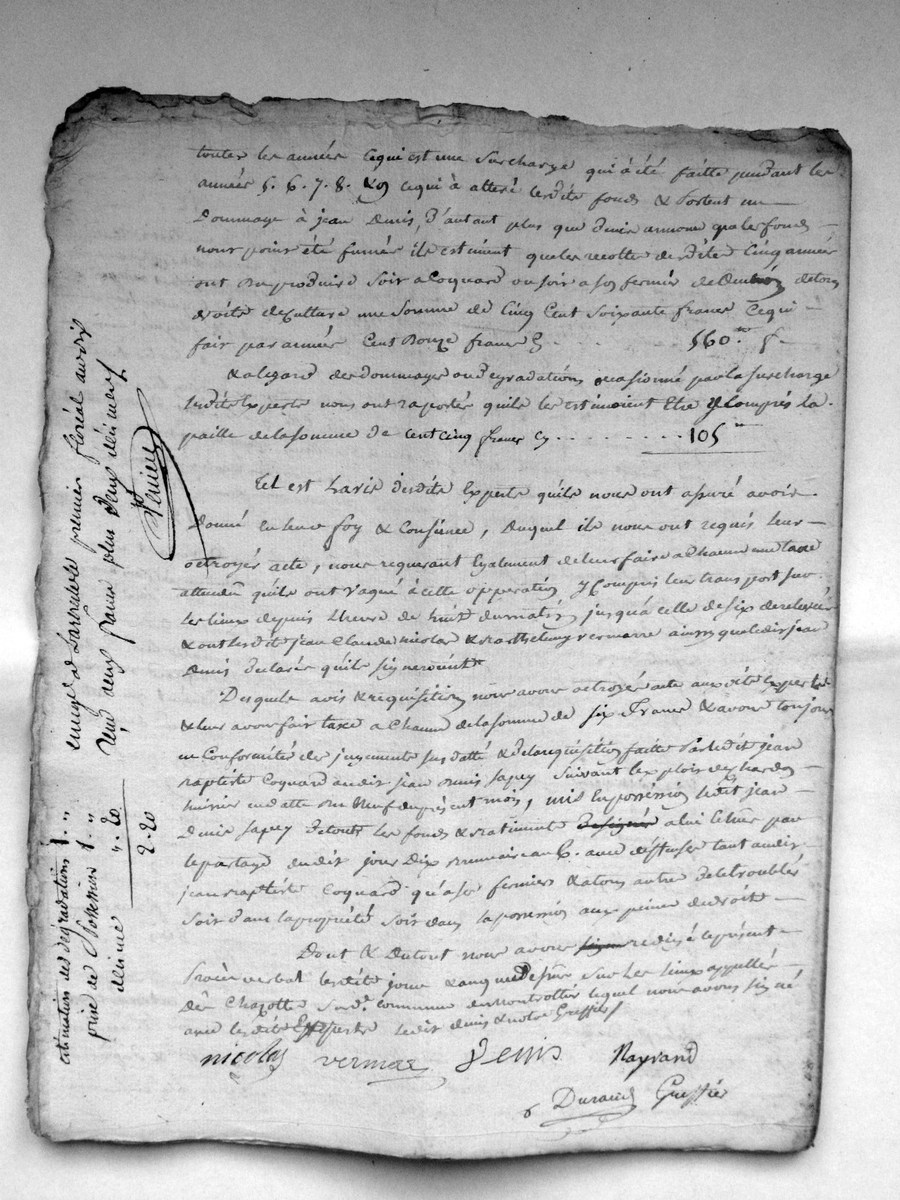 toutes les année ce qui est une surcharge qui à été faitte pendant les
année 5. 6. 7. 8. & 9 ce qui à alteré lesdits fonds & portent un
Dommage à jean Denis, D'autant plus que Denis annonce que les fonds
nont point été fumés ils estiment que les recolte desdite Cinq année
ont du produire soit a Coquard ou soit a son fermié de deduction de tous
droits de culture une somme de Cinq Cent soixante francs Ce qui
fait par année Cent Douze francs Cy . . . . 560.
& a legard des Dommages ou Degradations ocasionné par la surcharge
lesdits Experts nous ont raportés quils les estimoient Etre y Compris la
paille de la somme de cent cinq francs Cy . . . . . . . 105
Tel est Lavis desdits Experts quils nous ont assuré avoir
Donné en leur foy & Consience, Duquel ils nous ont requis leur
octroyés acte, nous requerant Egalement de leur faire a Chacun une taxe
attendu quils ont vaqué à cette opperation, y Compris leur transport sur
les lieux depuis Lheure de huit du matin jusqu'à celle de six de relevée
& ont lesdits jean Claude nicolas & Barthelemy vermare ainsy que ledit jean
Denis declarés quils signeroient
Desquels avis & requisition nous avons octroyés acte auxdits Experts
& leur avons fait taxe a Chacun de la somme de six Francs & avons toujours
en Conformités des jugements susdatté & de la requisition faitte Par ledit jean
Baptiste Coquard audit jean Denis Sapey suivant l'exploit de chardon
huissier en datte du Neuf du present mois, mis En possession ledit jean
Denis Sapey De touts les fonds & Batiment a lui Echus par
le partage dudit jour Dix avec deffense tant audit
jean Baptiste Coquard qu'a ses fermiers & a tous autre De le troublés
soit Dans la propriété soit dans la possession aux peines de droit
Dont & Dutout nous avons redigé le présent
Procès verbal lesdits jour & an que Dessus sur les lieux appellés
Des Chazotte susd. commune de Montrottier lequel nous avons signé
avec lesdits Experts ledit denis & notre Greffier
nicolas vermare Denis Raynand
Durand Greffier
enrg. à Larbresle premier floréal an dix
Reçu deux francs plus deux décimes
estimation des dégradations 1. "
prise de Possession 1. "
décime ". 20
2. 20